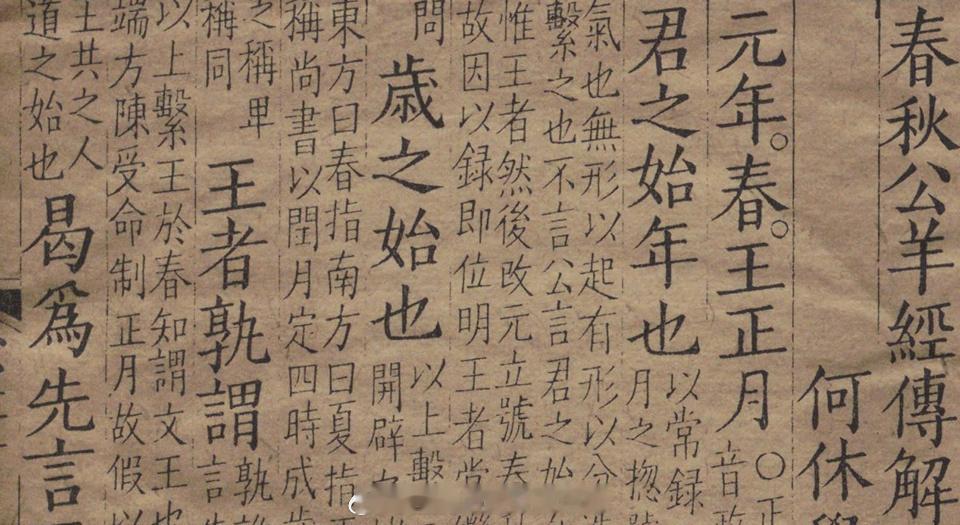 春秋公羊經傳解
何休
元年。春。王正月
○正
音政
君之始年也
以常録
月之揔號
氣也無形以起有形以分造
繫之也不言公言君之始年
惟王者然後改元立號春秋
故因以録即位明王者當繼
問
歳之始也
以上繫
開辟
東方曰春指南方曰夏指
稱尚書以閏月定四時成歳
之稱
稱同
王者孰謂
孰
言先
以上繫王於春知謂文王也
端方陳受命制正月故假以
王共之人
道之始也
曷爲先言